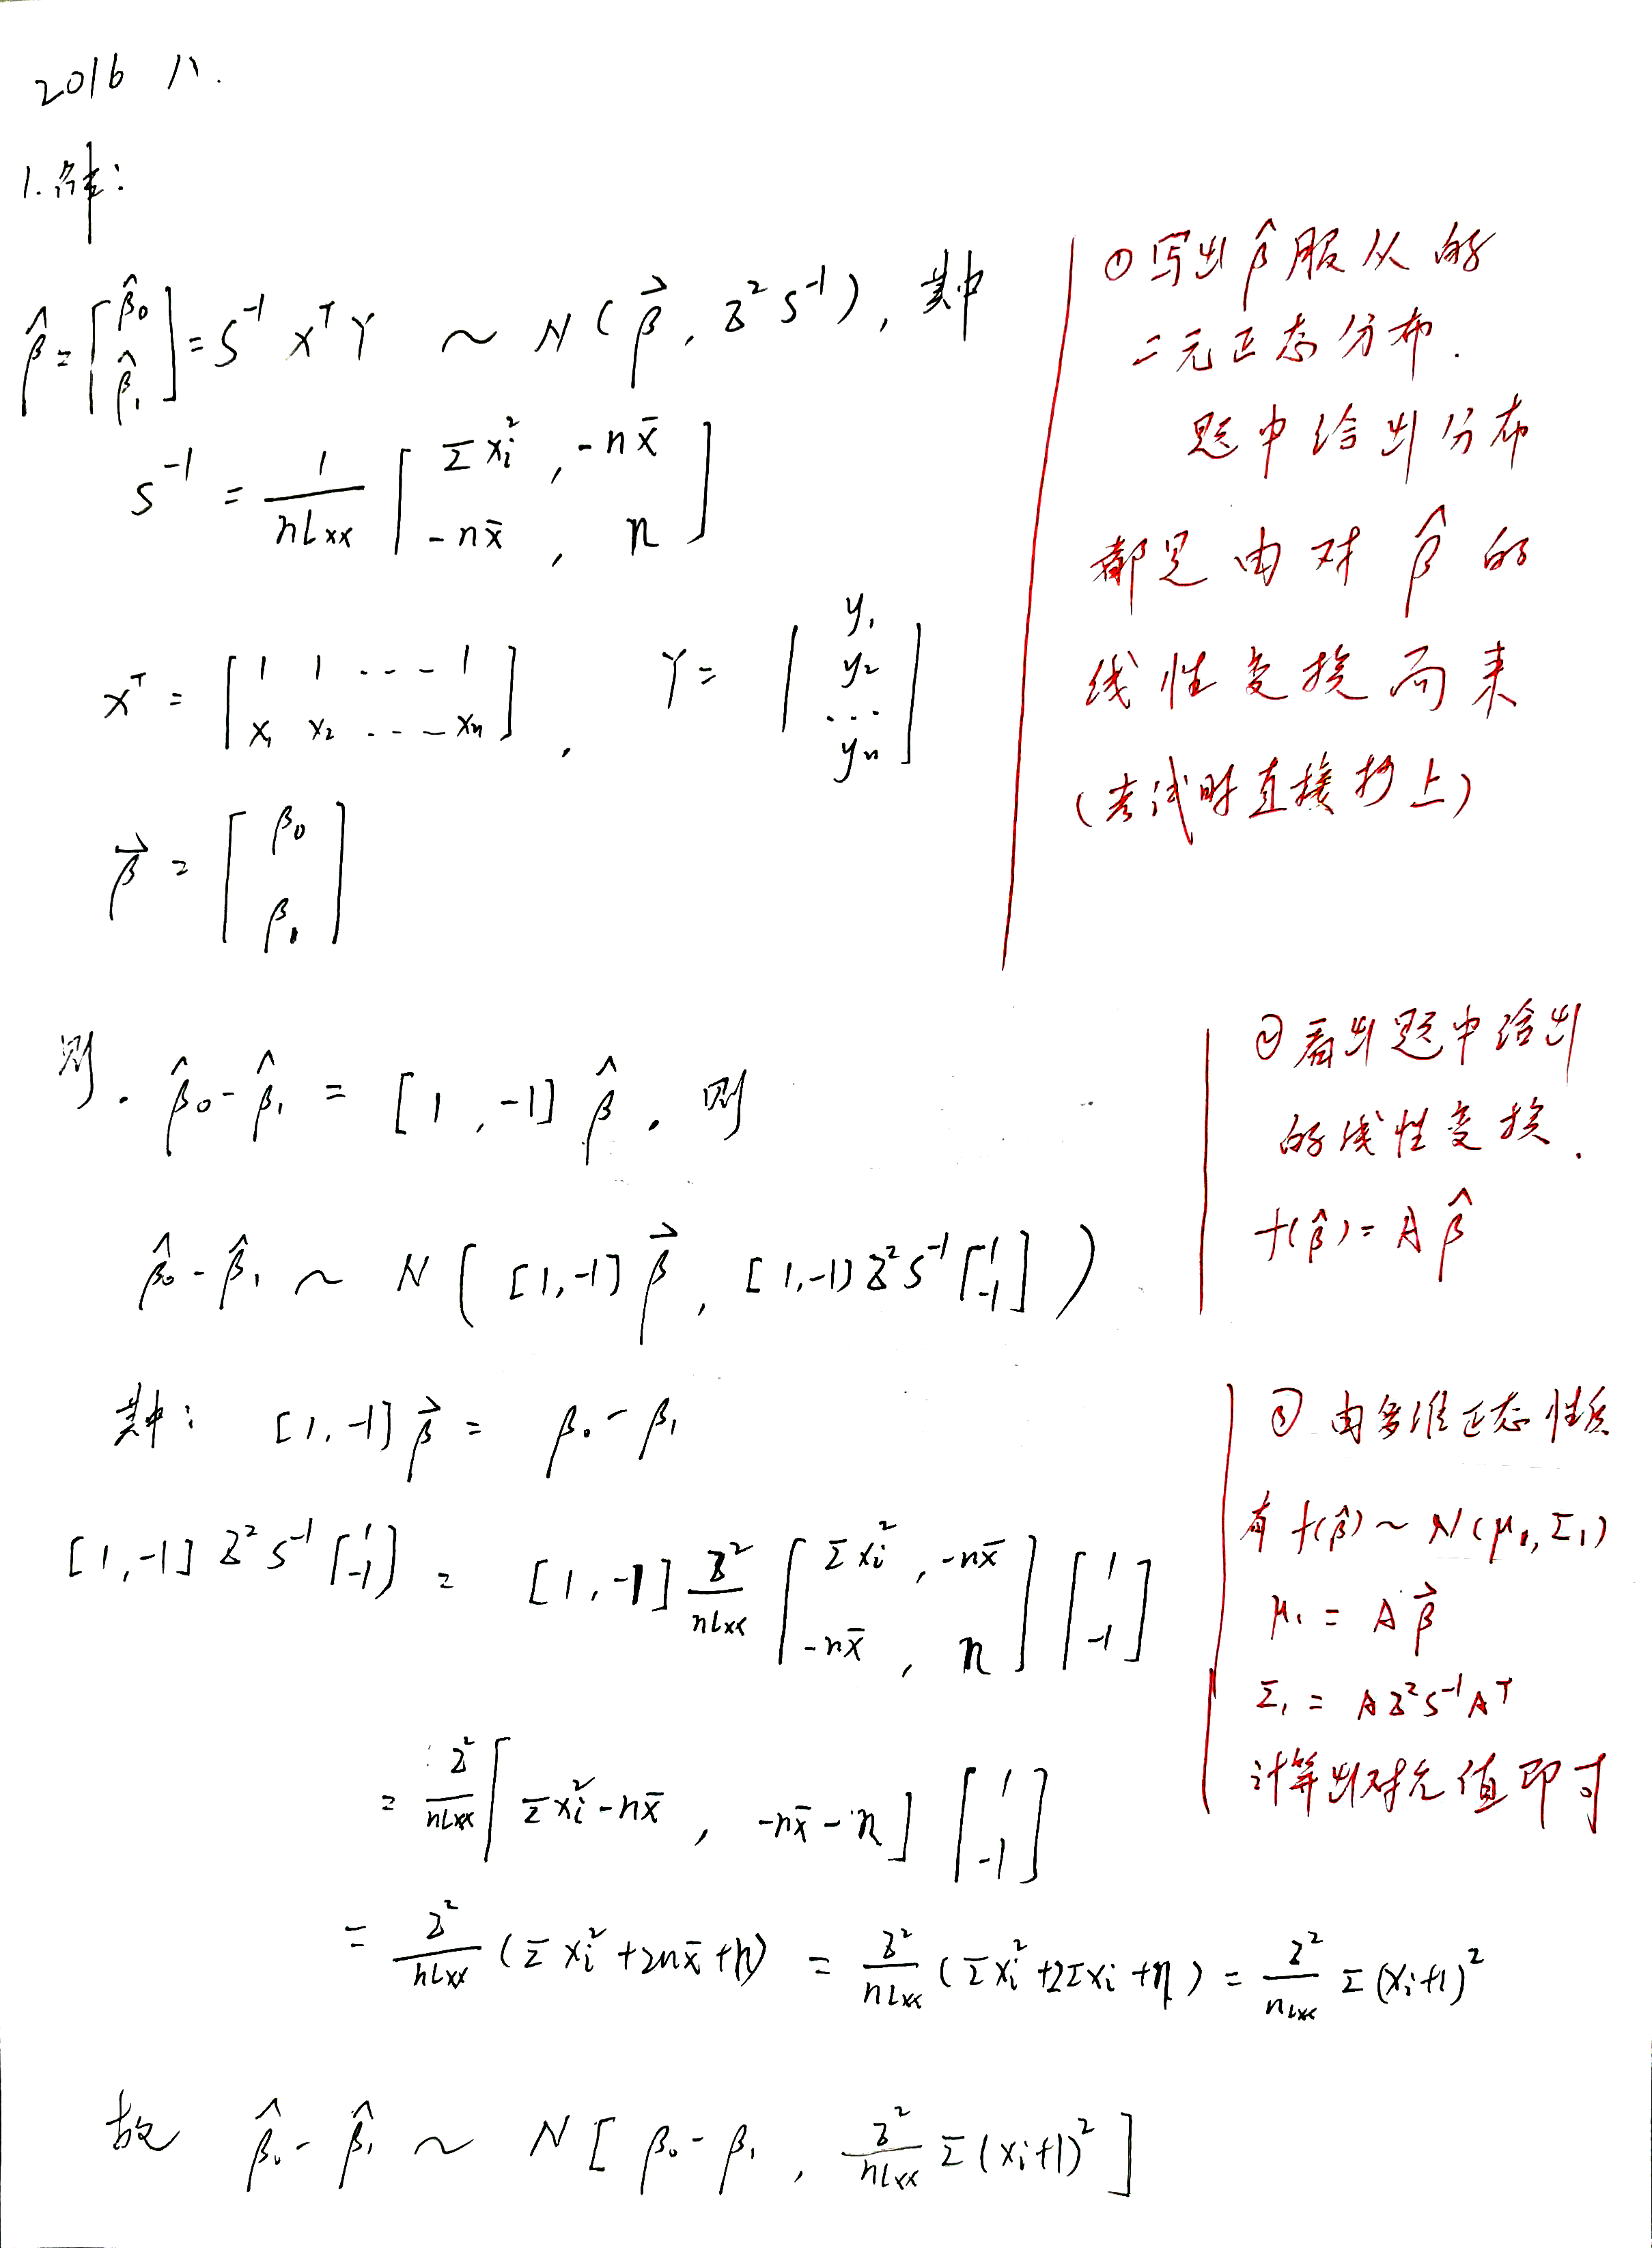 2016 八.
1.解:
β̂ = [β̂₀ β̂₁] = S⁻¹ Xᵀ Y ~ N(β⃗, σ² S⁻¹), 其中
S⁻¹ = 1/(nLxx) [Σxᵢ², -nx̄; -nx̄, n]
Xᵀ = [1 1 ... 1; x₁ x₂ ... xₙ], Y = [y₁ y₂ ... yₙ]
β⃗ = [β₀ β₁]
① 写出 β̂ 服从的
二元正态分布.
题中给出分布
都是由对 β̂ 的
线性变换而来
(考试时直接抄上)
则. β̂₀ - β̂₁ = [1, -1] β̂. 则
β̂₀ - β̂₁ ~ N([1, -1] β⃗, [1, -1] σ² S⁻¹ [1 -1])
② 看出题中给出
的线性变换.
f(β̂) = A β̂
其中: [1, -1] β⃗ = β₀ - β₁
[1, -1] σ² S⁻¹ [1 -1] = [1, -1] σ²/(nLxx) [Σxᵢ², -nx̄; -nx̄, n] [1 -1]
= σ²/(nLxx) [Σxᵢ² - nx̄, -nx̄ - n] [1 -1]
= σ²/(nLxx) (Σxᵢ² + 2nx̄ + n) = σ²/(nLxx) (Σxᵢ² + 2Σxᵢ + n) = σ²/(nLxx) Σ(xᵢ+1)²
③ 由多维正态性质
有 f(β̂) ~ N(μ₁, Σ₁)
μ₁ = A β⃗
Σ₁ = A σ² S⁻¹ Aᵀ
计算出对应值即可
故 β̂₀ - β̂₁ ~ N[β₀ - β₁, σ²/(nLxx) Σ(xᵢ+1)²]